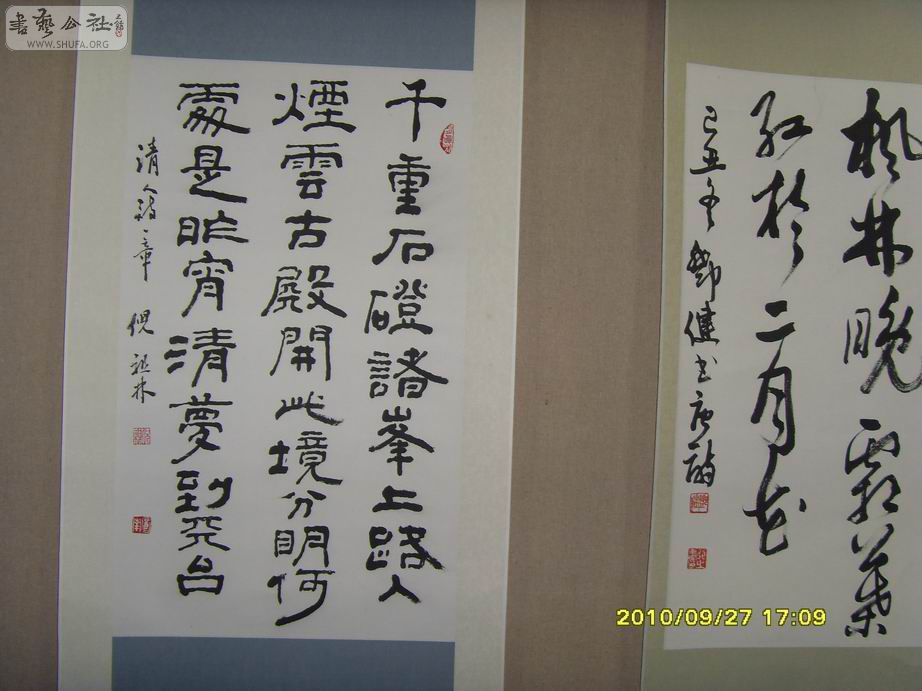 書藝公社
WWW.SHUFA.ORG
千重石磴諸峯上路入
煙雲古殿開此境分明何
處是昨宵清夢到天台
清人詩一章 倪祖林
楓林晚霜葉
紅於二月花
己丑冬 鄧健书唐詩
2010/09/27 17:09